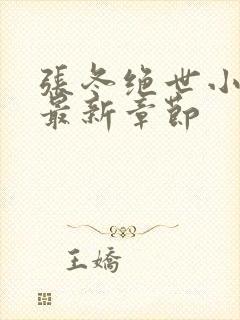 張冬绝世小
最新章節
王嬌